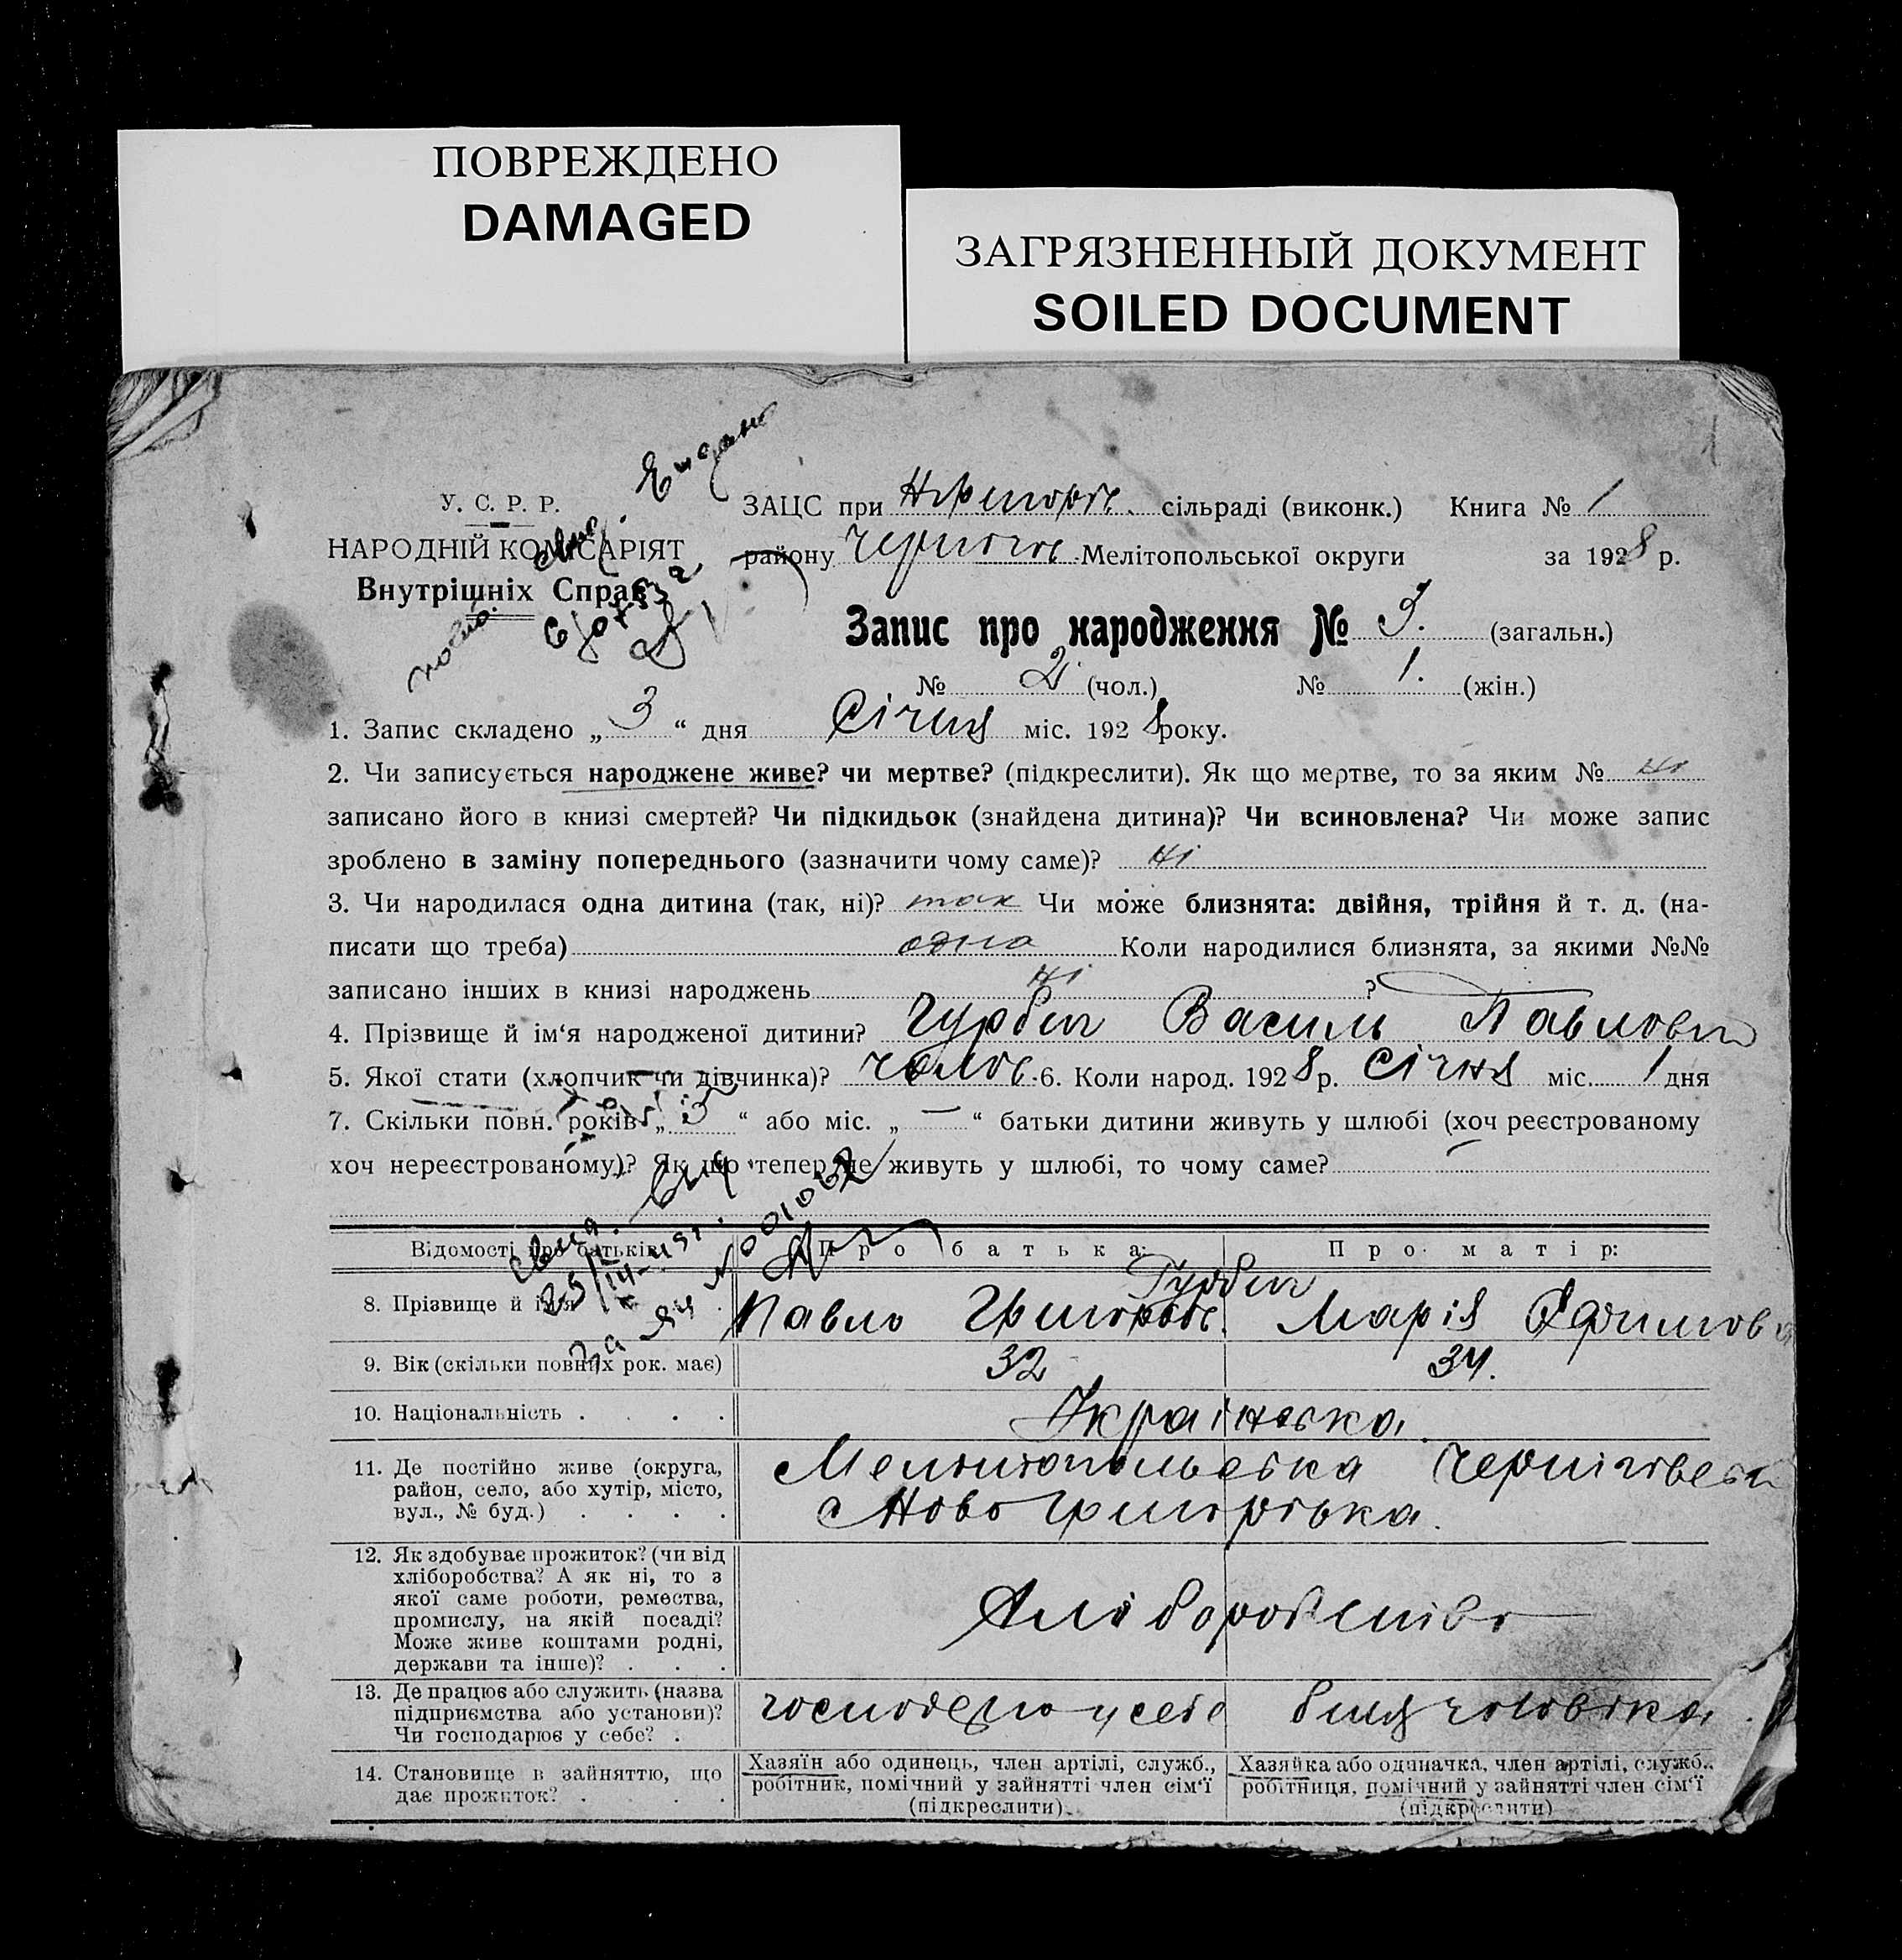 ПОВРЕЖДЕНО
DAMAGED
ЗАГРЯЗНЕННЫЙ ДОКУМЕНТ
SOILED DOCUMENT
1
У. С. Р. Р.
НАРОДНІЙ КОМІСАРІЯТ
Внутрішніх Справ
ЗАЦС при сільраді (виконк.) Книга № 1
району Черниговс. Мелітопольської округи за 1928 р.
Запис про народження № 3. (загальн.)
№ 2 (чол.) № 1. (жін.)
1. Запис складено „ 3 “ дня Січня міс. 1928 року.
2. Чи записується народжене живе? чи мертве? (підкреслити). Як що мертве, то за яким № ні
записано його в книзі смертей? Чи підкидьок (знайдена дитина)? Чи всиновлена? Чи може запис
зроблено в заміну попереднього (зазначити чому саме)? ні
3. Чи народилася одна дитина (так, ні)? так Чи може близнята: двійня, трійня й т. д. (на-
писати що треба) одна Коли народилися близнята, за якими №№
записано інших в книзі народжень ні ?
4. Прізвище й ім‘я народженої дитини? Гурбич Василь Павлович
5. Якої стати (хлопчик чи дівчинка)? чолов. 6. Коли народ. 1928 р. Січня міс. 1 дня
7. Скільки повн. років „ “ або міс. „ — “ батьки дитини живуть у шлюбі (хоч реєстрованому
хоч нереєстрованому)? Як що тепер не живуть у шлюбі, то чому саме?
Відомості про батьків Про батька: Про матір:
Гурбич
8. Прізвище й ім‘я Павло Григоров. Марія
9. Вік (скільки повних рок. має) 32 34.
10. Національність . . . . Українська.
11. Де постійно живе (округа,
район, село, або хутір, місто,
вул., № буд.) . . . .
Мелитопольська Чернігівська
с Ново Григорівка.
12. Як здобуває прожиток? (чи від
хліборобства? А як ні, то з
якої саме роботи, ремества,
промислу, на якій посаді?
Може живе коштами родні,
держави та інше)? . . .
Хліборобство
13. Де працює або служить (назва
підприємства або установи)?
Чи господарює у себе? .
у себе біля чоловіка.
14. Становище в зайняттю, що
дає прожиток? . . . .
Хазяїн або одинець, член артілі, служб.,
робітник, помічний у зайнятті член сім‘ї
(підкреслити).
Хазяйка або одиначка, член артілі, служб.,
робітниця, помічний у зайнятті член сім‘ї
(підкреслити)